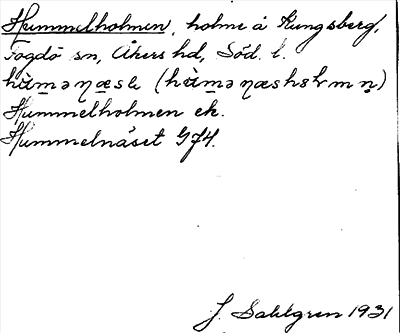 Hummelholmen, holme å Kungsberg,
Fogdö sn, Åkers hd, Söd. l.
Hummelholmen ek.
Hummelnäset G74.
J. Sahlgren 1931